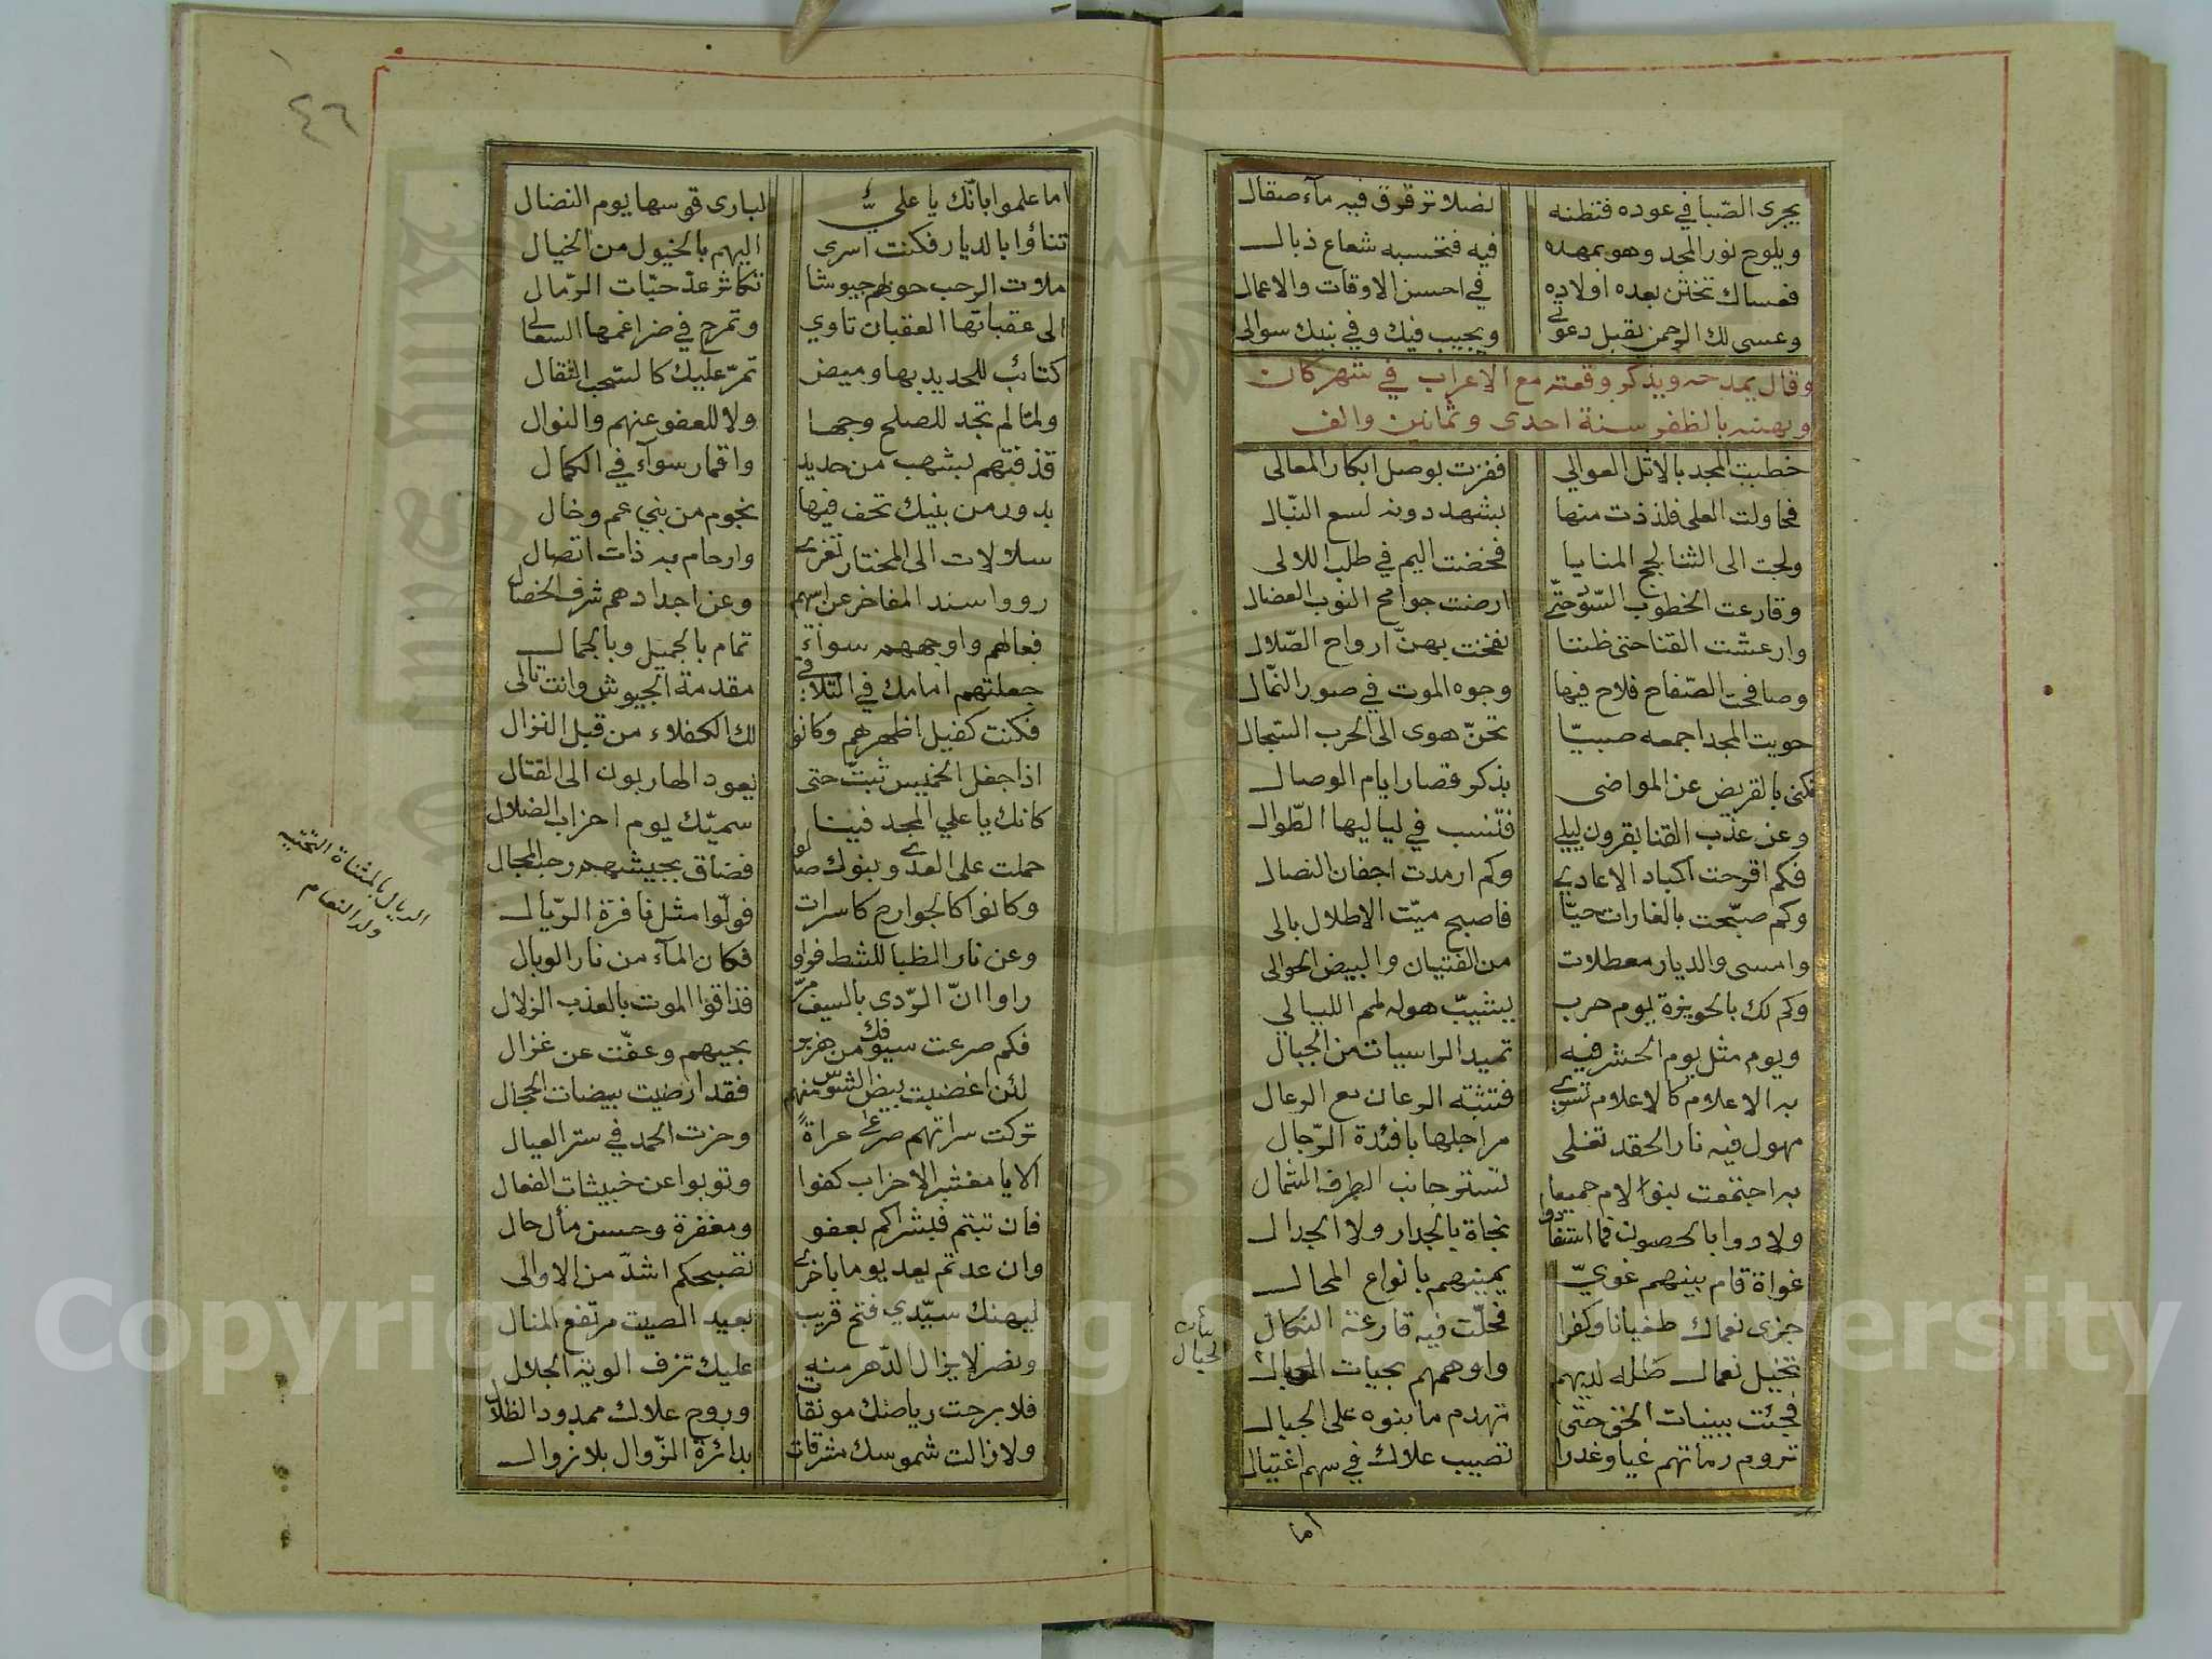 يجرى الصّبا في عوده فتظنه نصلا ترقرق فيه مآء صقال
ويلوح نور المجد وهو بمهده فيه فتحسبه شعاع ذبال
فعساك تختن بعده اولاده في احسن الاوقات والاعمال
وعسى لك الرحمن يقبل دعوتي ويجيب فيك وفي بنيك سوالى
وقال يمدحه ويذكر وقعته مع الاعراب في شهر كان
ويهنيه بالظفر سنة احدى وثمانين والف
خطبت المجد بالاتل العوالي ففزت بوصل ابكار المعالى
فحاولت العلى فلذذت منها بشهد دونه لسع النبّال
ولجت الى الثنا لجج المنايا فخضت اليم في طلب اللالى
وقارعت الخطوب السّود حتّى ارضت جوامح النوب العضال
وارعشت القنا حتى ظننا نفخت بهنّ ارواح الصّلال
وصافحت الصّفاح فلاح فيها وجوه الموت في صور النّمال
حويت المجد اجمعه صبيّا تحنّ هوى الى الحرب السّجال
فكنى بالقريض عن المواضى بذكر قصار ايام الوصال
وعن عذب القنا بقرون ليلى فتنسب في لياليها الطّوال
فكم اقرحت اكباد الاعادي وكم ارمدت اجفان النصال
وكم صبّحت بالغارات حيّا فاصبح ميّت الاطلال بالى
وامسى والديار معطلات من الفتيان والبيض الحوالى
وكم لك بالحويزة يوم حرب يشيبّ هوله لمم الليالي
ويوم مثل يوم الحشر فيه تميد الراسيات من الجبال
به الاعلام كالاعلام تسري فتشتبه الرعان مع الرعال
مهول فيه نار الحقد تغلى مراجلها بافئدة الرّجال
به اجتمعت بنو الام جميعا تستتر جانب الطرف الشمال
ولاذوا بالحصون فما استفادوا نجاة بالجدار ولا الجدال
غواة قام بينهم غويّ يمينهم بانواع المحال
جزى نعماك طغيانا وكفرا فحلّت فيه قارعة النكال
تخيل نعمال ظله لديهم واوهمهم بجيات الحبال
فجئت ببينات الحق حتى تهدم ما بنوه على الجبال
تروم رماتهم غيا وغدرا تصيب علاك في سهم اغتيال
الحبال
اما
٤٦
اما علموا بانّك يا عليّ لبارى قوسها يوم النضال
تناؤا بالديار فكنت اسرى اليهم بالخيول من الخيال
ملات الرحب حولهم جيوشا تكاثر عدّ حبّات الرّمال
الى عقباتها العقبان تاوي وتمرح في ضراغمها السعالي
كتائب للحديد بها وميض تمرّ عليك كالسّحب الثقال
ولما لم تجد للصلح وجها ولا للعفو عنهم والنوال
قذفتهم بشهب من حديد واقمار سوآء في الكمال
بدور من بنيك تحف فيها نجوم من بني عم وخال
سلالات الى المختار تغرى وارحام به ذات اتصال
رووا سند المفاخر عن ابيهم وعن اجدادهم شرف الخصال
فعالهم واوجههم سوآء تمام بالجميل وبالجمال
جعلتهم امامك في التلاقي مقدمة الجيوش وانت تالى
فكنت كفيل اظهرهم وكانوا لك الكفلاء من قبل النزال
اذا جفل الخميس ثبتّ حتى يعود الهاربون الى القتال
كانك يا علي المجد فينا سميّك يوم احزاب الضلال
حملت على العدى وبنوك صالوا فضاق بجيشهم رحب المجال
وكانوا كالجوارح كاسرات فولّوا مثل نافرة الرّيال
وعن نار الظبا للشط فروا فكان المآء من نار الوبال
راوا انّ الرّدى بالسيف مرّ فذاقوا الموت بالعذب الزلال
فكم صرعت سيوفك من هزبر بجيهم وعفّت عن غزال
لئن اغضبت بيض الشوس منهم فقد ارضيت بيضات الحجال
تركت سراتهم صرعى عراةً وحزت الحمد في ستر العيال
الا يا معشر الاحزاب كفوا وتوبوا عن خبيثات الفعال
فان تبتم فبشراكم بعفو ومغفرة وحسن مآل حال
وان عدتم يعد يوما باخرى تصبحكم اشدّ من الاوالى
ليهنك سيّدي فتح قريب بعيد الصيت مرتفع المنال
ونصر لا يزال الدّهر منه عليك تزف الوية الجلال
فلا برحت رياضك مونقات وروح علاك ممدود الظلال
ولا زالت شموسك مشرقات بدائرة الزّوال بلا زوال
الريال بالمثناة التحتيه
ولد النعام
Copyright © King Saud University
1957